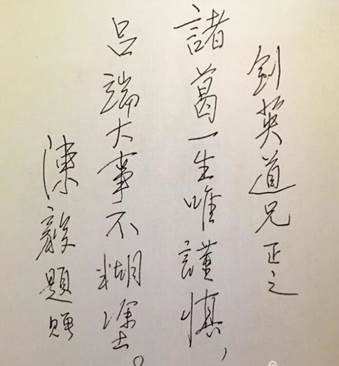 劍英道兄正之
諸葛一生唯謹慎，
呂端大事不糊塗。
陳毅題贈